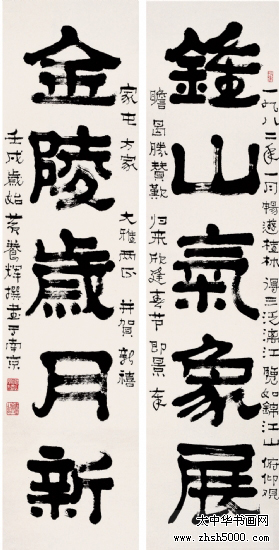 鍾山氣象展
金陵歲月新
一九八二年一月暢遊桂林得三泛漓江覽如錦江山俯仰觀
瞻益勝贊歎歸來欣逢春節即景奉
家屯方家大雅兩正并賀新禧
壬戌歲始黃養輝撰書于南京
大中华书画网
www.zhsh5000.com